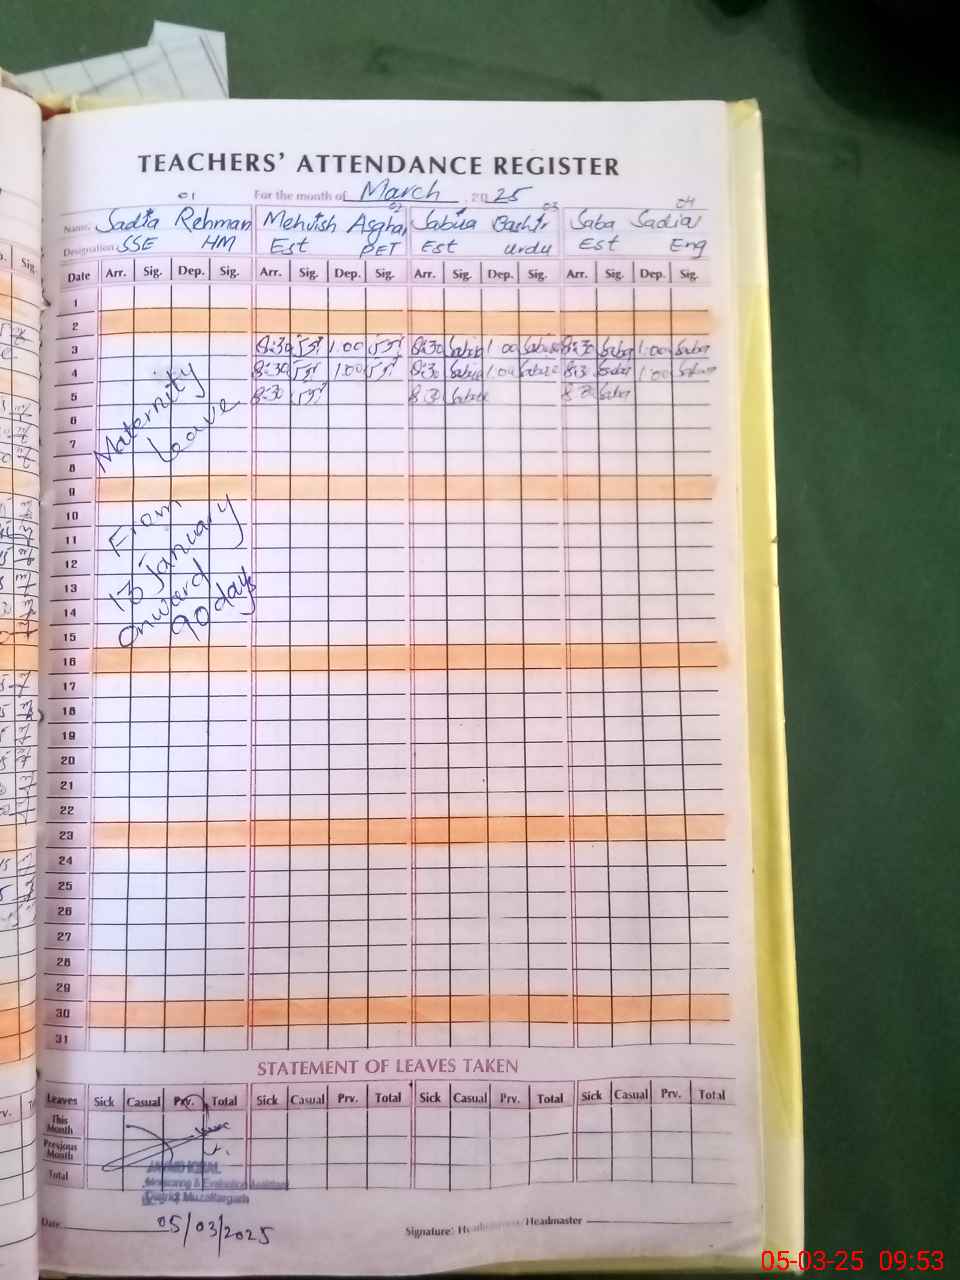 TEACHERS' ATTENDANCE REGISTER
For the month of March 2025
01 02 03 04
Name. Sadia Rehman Mehvish Asghar Sabira Bashir Saba Sadiq
Designation SSE HM Est PET Est Urdu Est Eng
Date Arr. Sig. Dep. Sig. Arr. Sig. Dep. Sig. Arr. Sig. Dep. Sig. Arr. Sig. Dep. Sig.
1
2
3 8:30 1.00 8:30 1.00 8:30 Saba 1.00 Saba
4 8:30 1.00 8:30 1.00 8:3 1.00
5 8:30 8:30 8:3 Saba
6
7
8
9
10
11
12
13
14
15
16
17
18
19
20
21
22
23
24
25
26
27
28
29
30
31
Maternity
Leave
From
13 January
onward
90 days
STATEMENT OF LEAVES TAKEN
Leaves Sick Casual Prv. Total Sick Casual Prv. Total Sick Casual Prv. Total Sick Casual Prv. Total
This Month
Previous Month
Total
JAVAID IQBAL
Monitoring & Evaluation Assistant
District Muzaffargarh
Date 05/03/2025
Signature: Headmistress/Headmaster
05-03-25 09:53